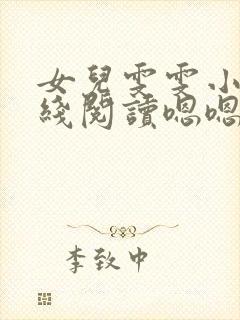 女兒雯雯小
綫閱讀嗯嗯
李致中